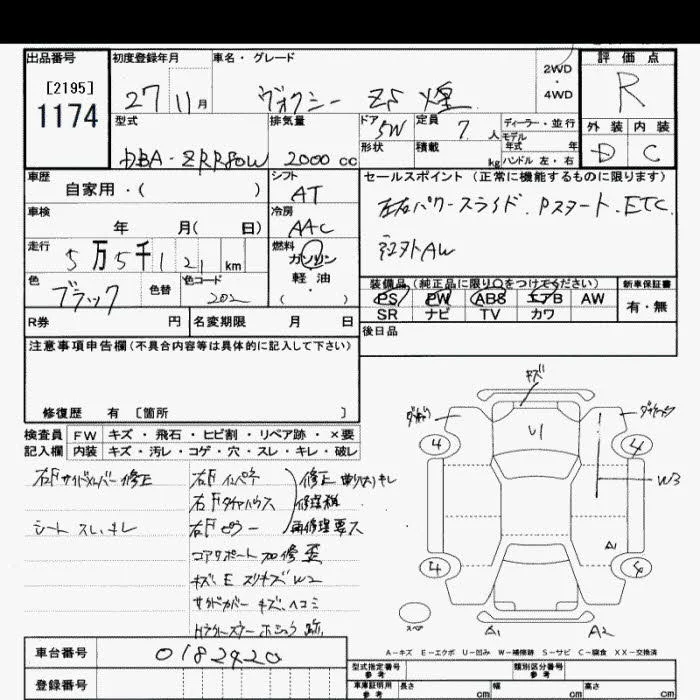 出品番号
[2195]
1174
初度登録年月
27 11月
車名・グレード
ヴォクシー ZS 煌
2WD
・
4WD
評価点
R
外装 内装
D C
型式
DBA-ZRR80W
排気量
2000 cc
ドア 5W
形状
定員 7 人
積載 kg
ディーラー・並行
モデル
年式 年
ハンドル 左・右
車歴
自家用・( )
シフト
AT
車検
年 月( 日)
冷房
AAC
走行
5万5千121 km
燃料
ガソリン
軽油
( ・ )
色
ブラック
色替
色コード
202
セールスポイント (正常に機能するものに限ります)
左右パワースライド、Pスタート、ETC
社外AW
装備品(純正品に限り○をつけて下さい)
PS PW ABS エアB AW
SR ナビ TV カワ
新車保証書
有・無
R券 円
名変期限 月 日
後日品
注意事項申告欄(不具合内容等は具体的に記入して下さい)
修復歴 有 [箇所 ]
検査員 FW キズ・飛石・ヒビ割・リペア跡・×要
記入欄 内装 キズ・汚レ・コゲ・穴・スレ・キレ・破レ
右Fサイドメンバー修正
シート スレ、キレ
右Fインパネ
右Fタイヤハウス
右Fピラー
修正
修理跡
再修理要ス
コアサポート 加修歪
キズ E スリキズ W2
サイドカバー キズ、ヘコミ
キズ
U1
4
4
4
4
W3
A1
A1
A2
スペア
A-キズ E-エクボ U-凹み W-補修跡 S-サビ C-腐食 XX-交換済
車台番号
0182920
登録番号
型式指定番号
参考
類別区分番号
参考
車庫証明用
参考
長さ cm
幅 cm
高さ cm